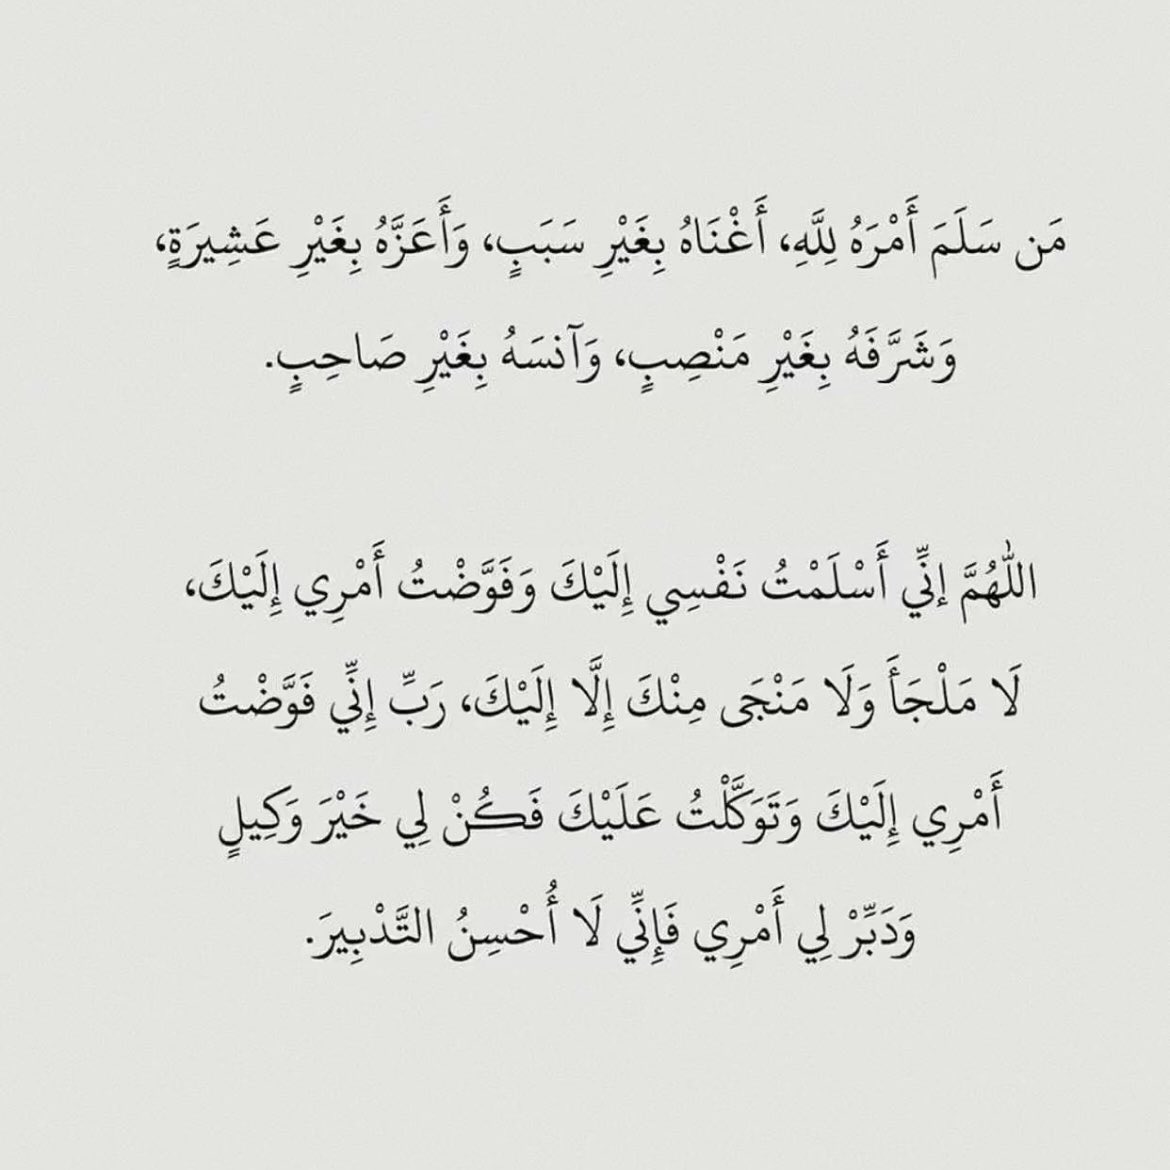 مَن سَلَمَ أَمْرَهُ لِلَّهِ، أَغْنَاهُ بِغَيْرِ سَبَبٍ، وَأَعَزَّهُ بِغَيْرِ عَشِيرَةٍ،
وَشَرَّفَهُ بِغَيْرِ مَنْصِبٍ، وَآنسَهُ بِغَيْرِ صَاحِبٍ.
اللّٰهُمَّ إنِّي أَسْلَمْتُ نَفْسِي إِلَيْكَ وَفَوَّضْتُ أَمْرِي إِلَيْكَ،
لَا مَلْجَأَ وَلَا مَنْجَى مِنْكَ إِلَّا إِلَيْكَ، رَبِّ إِنِّي فَوَّضْتُ
أَمْرِي إِلَيْكَ وَتَوَكَّلْتُ عَلَيْكَ فَكُنْ لِي خَيْرَ وَكِيلٍ
وَدَبِّرْ لِي أَمْرِي فَإِنِّي لَا أُحْسِنُ التَّدْبِيرَ.